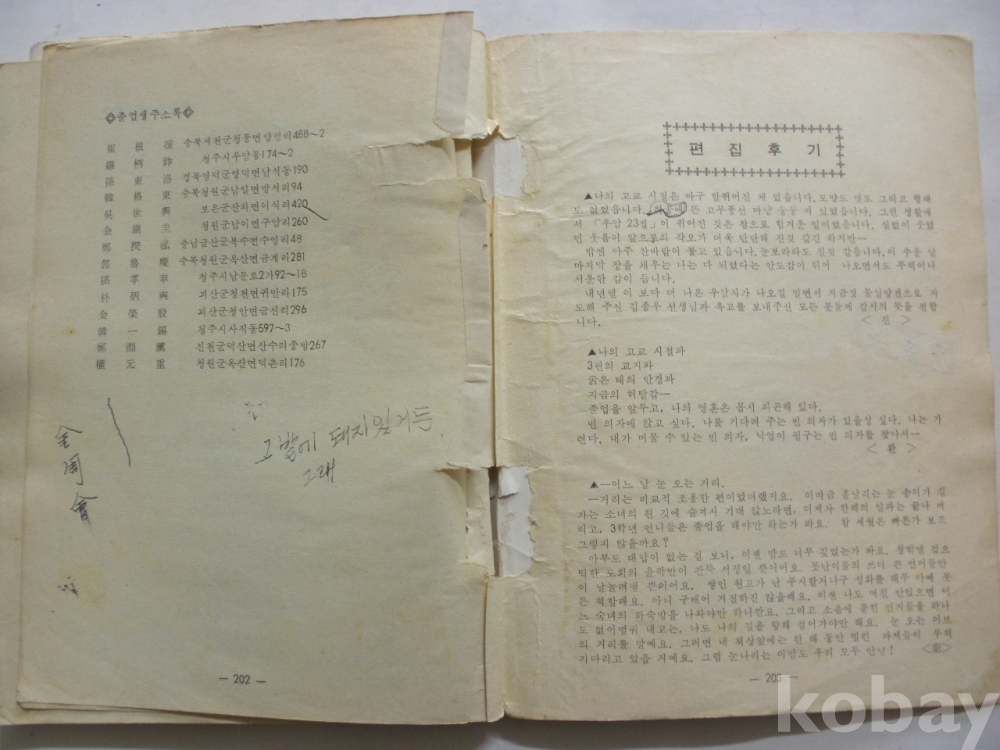 졸업생주소록
崔根 충북제천군청풍면양평리488~2
羅柄 청주시우암동174~2
孫東洛 경북영덕군영덕면남석동190
韓格東 충북청원군남일면방서리94
吳世 보은군산외면이식리420
金鎭圭 청원군남이면구암리260
鄭 泓 충남금산군복수면수영리48
郭魯慶 충북청원군옥산면금계리281
孫孝奉 청주시남문로2가92~18
朴炳 괴산군청천면귀만리175
金榮毅 괴산군청안면금신리296
韓一錫 청주시사직동597~3
鄭 진천군덕산면산수리중방267
權元重 청원군옥산면덕촌리176
그밭에 돼지있거든
그래
金周會
— 202 —
편집후기
▲나의 고교 시절은 마구 합뛰어진 채 있읍니다. 모양도 빛도 그리고 형태
도 없었읍니다. 든 고무풍선 마냥 둥둥 떠 있었읍니다. 그런 생활에
서 「우암 23집」이 쥐어진 것은 참으로 힘겨운 일이었읍니다. 실없이 웃었
던 웃음이 앞으로의 각오가 더욱 단단해 진것 같긴 하지만—
밖엔 아주 찬바람이 불고 있읍니다. 눈보라라도 칠것 같읍니다. 이 추운 날
마지막 장을 채우는 나는 다 되었다는 안도감이 쥐어 나오면서도 무척이나
서운한 감이 듭니다.
내년엘 이 보다 더 나은 우암지가 나오길 빌면서 지금껏 물심양면으로 지
도해 주신 김종우 선생님과 옥고를 보내주신 모든 분들께 감사의 뜻을 전합
니다. <진>
▲나의 고교 시절과
3권의 교지와
굵은 테의 안경과
지금의 허탈감—
졸업을 앞두고, 나의 영혼은 몹시 피곤해 있다.
빈 의자에 앉고 싶다. 나를 기다려 주는 빈 의자가 있을성 싶다. 나는 가
련다. 내가 머물 수 있는 빈 의자, 낙엽이 뒹구는 빈 의자를 찾아서—
<환>
▲—어느 날 눈 오는 거리.
—거리는 비교적 조용한 편이었더랬지요. 이따금 흩날리는 눈 송이가 걸
가는 소녀의 흰 깃에 숨겨서 기대 앉노라면, 이제사 한해의 일과는 끝나 버
리고, 3학년 언니들은 졸업을 해야만 하는가 봐요. 참 세월은 빠른가 보죠
그렇지 않을까요?
아무도 대답이 없는 걸 보니, 이젠 밤도 너무 깊었는가 봐요. 창박엘 겉으
덕한 도회의 윤곽만이 잔뜩 서성일 뿐이어요. 못난이들의 쓰디 쓴 언어들만
이 날늘려댈 뿐이어요. 쌓인 원고가 난 무시할거나구 성화를 해두 아예 못
든 척할래요. 아니 구태어 거절하진 않을래요. 이젠 나도 며친 안있으면 이
느 숙녀의 하숙방을 나와야만 하니깐요. 그리고 소음에 물린 먼지들을 하나
도 없이 내고는, 나도 나의 길을 향해 걸어가야만 해요. 눈 오는 이브
의 거리를 말예요. 그러면 내 책상앞에는 한 해 동안 밀린 과제들이 무척
기다리고 있을 거예요. 그럼 눈나리는 이밤도 우리 모두 안녕!
— 203 —
kobay